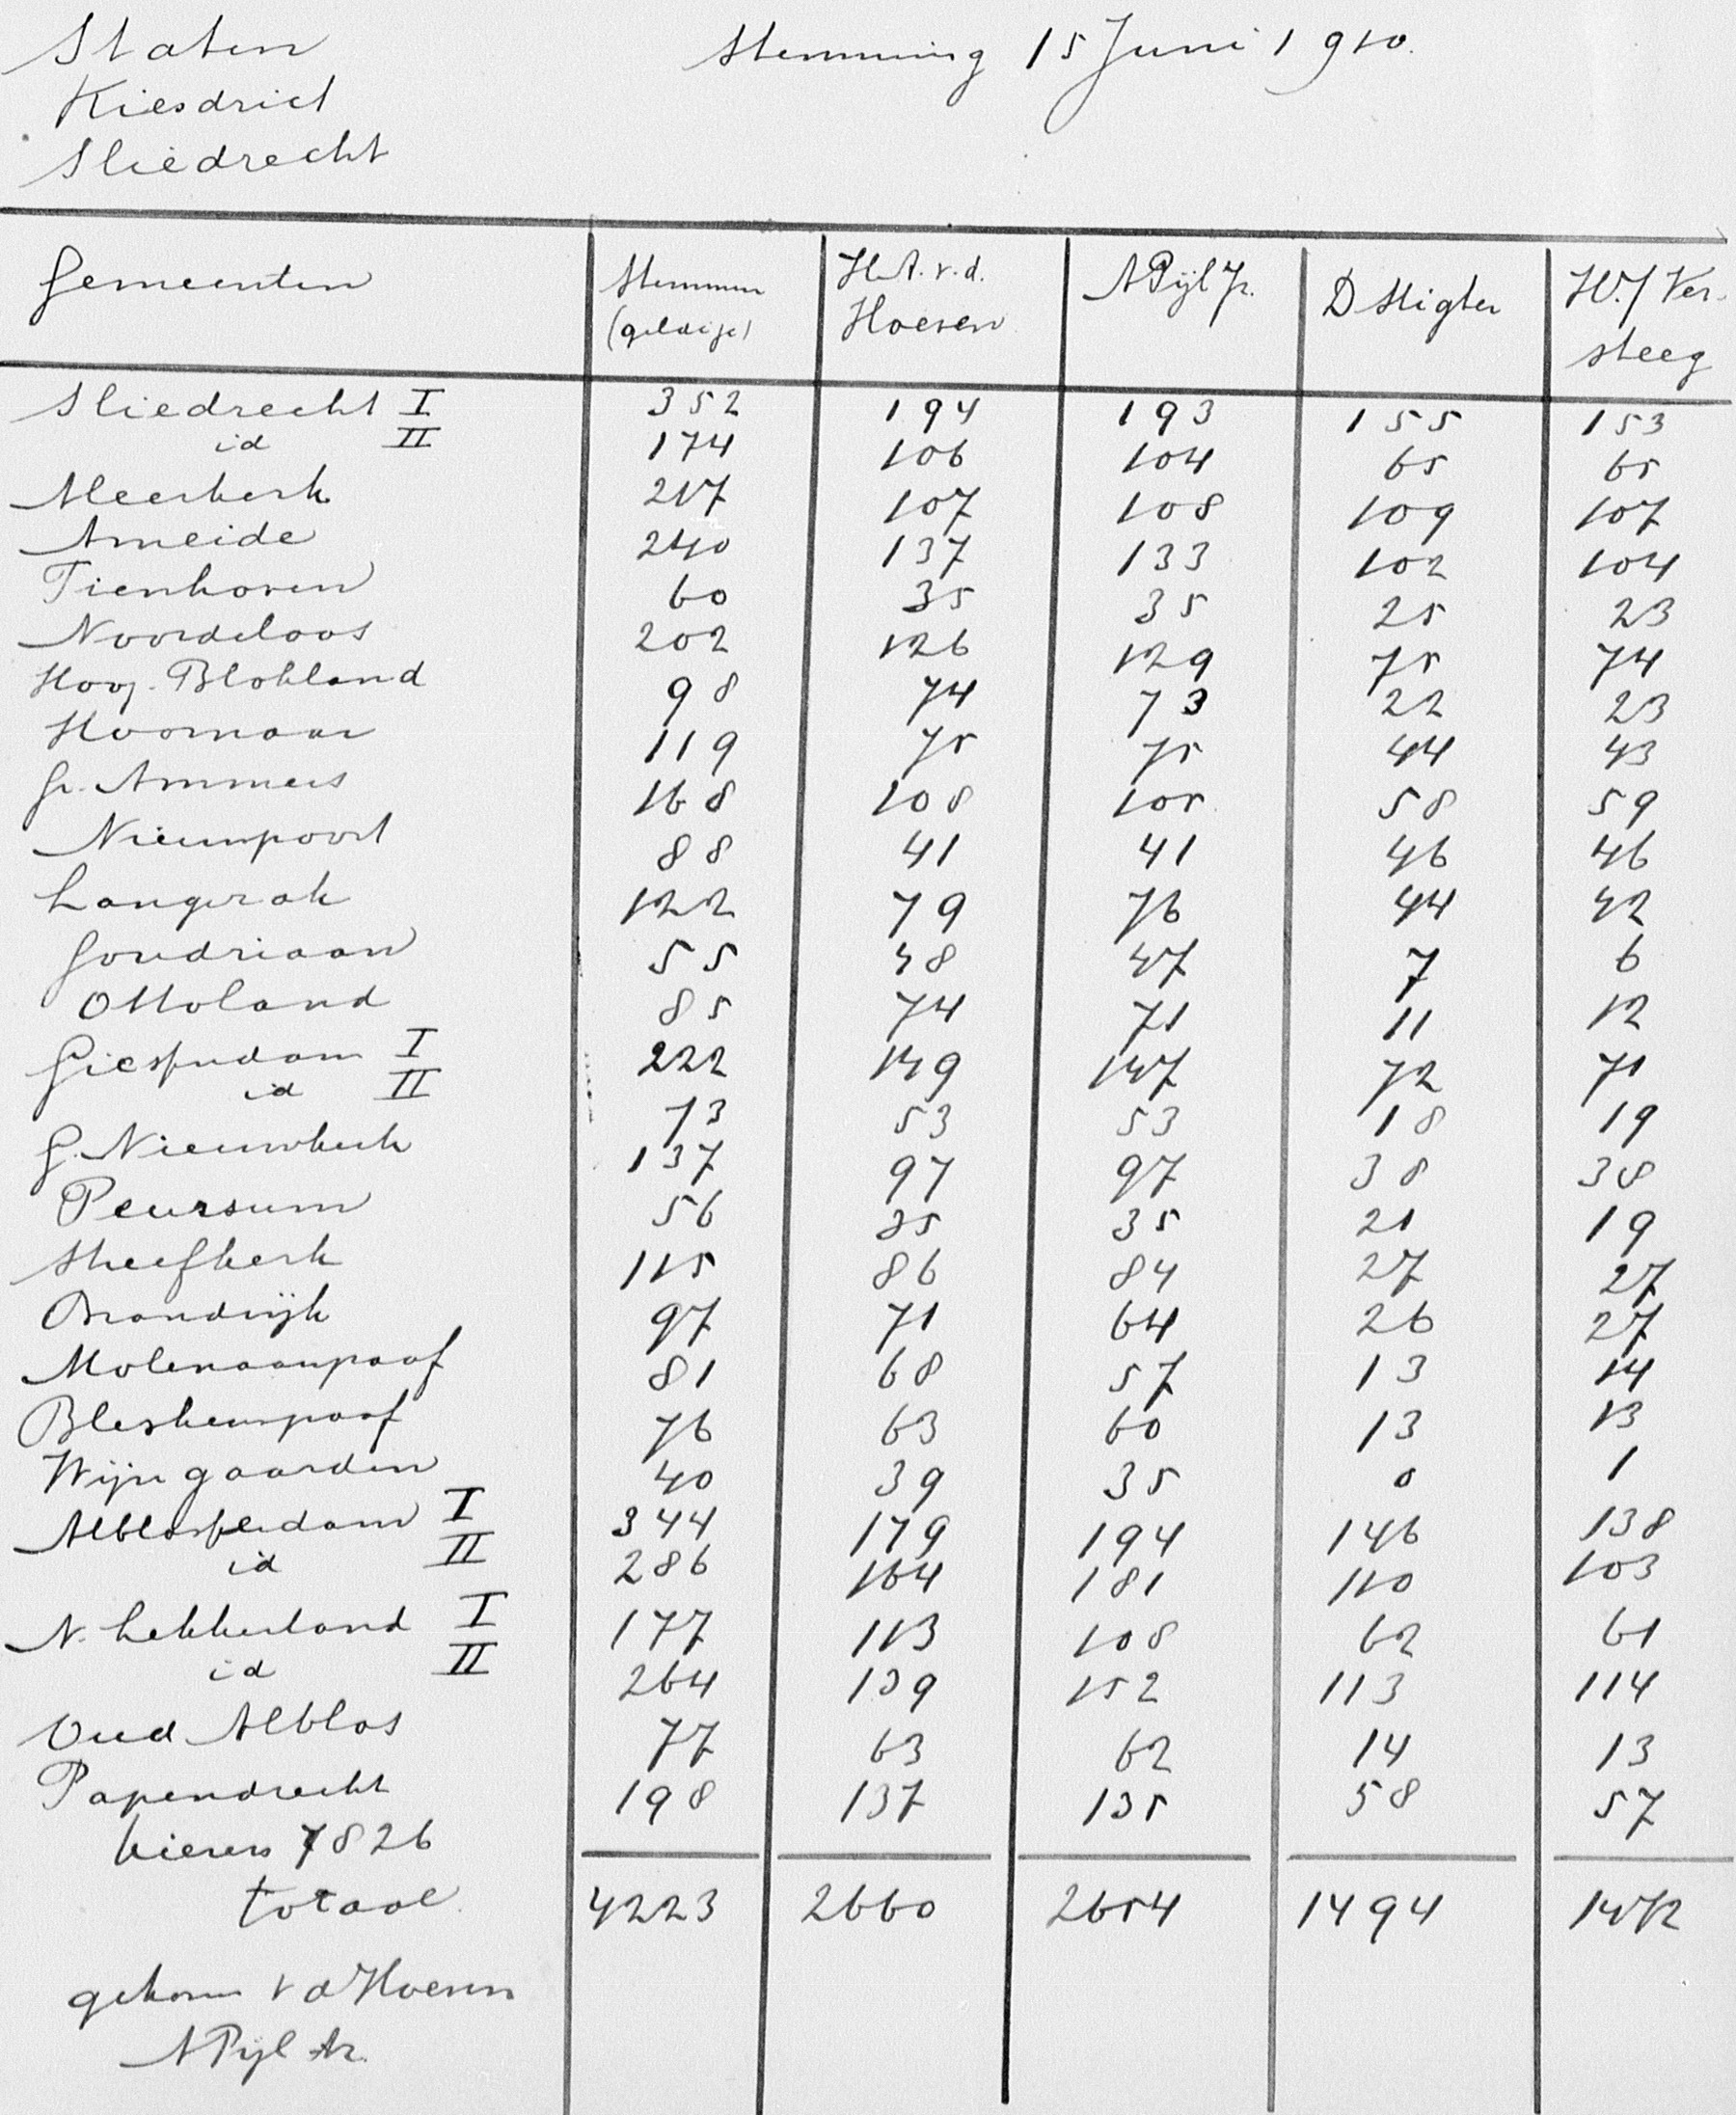 Staten Stemming 15 Juni 1910.
Kiesdrict
Sliedrecht
Gemeenten Stemmen (geldige) H.A. v.d. Hoeven A Pijl Jr. D Stigter W.J Ver-steeg
Sliedrecht I 352 194 193 155 153
id II 174 106 104 65 65
Meerkerk 217 107 108 109 107
Ameide 240 137 133 102 104
Tienhoven 60 35 35 25 23
Noordeloos 202 126 129 75 74
Hoog. Blokland 98 74 73 22 23
Hoornaar 119 75 75 44 43
Gr. Ammers 168 108 105 58 59
Nieuwpoort 88 41 41 46 46
Langerak 122 79 76 44 42
Goudriaan 55 48 47 7 6
Ottoland 85 74 71 11 12
Giessendam I 222 149 147 72 71
id II 73 53 53 18 19
G. Nieuwkerk 137 97 97 38 38
Peursum 56 35 35 21 19
Streefkerk 115 86 84 27 27
Brandwijk 97 71 64 26 27
Molenaarsgraaf 81 68 57 13 14
Bleskensgraaf 76 63 60 13 13
Wijngaarden 40 39 35 0 1
Alblasserdam I 344 179 194 146 138
id II 286 164 181 110 103
N. Lekkerland I 177 113 108 62 61
id II 264 139 152 113 114
Oud Alblas 77 63 62 14 13
Papendrecht 198 137 135 58 57
kiezers 7826
totaal 4223 2660 2654 1494 1472
gekozen v d Hoeven
A Pijl